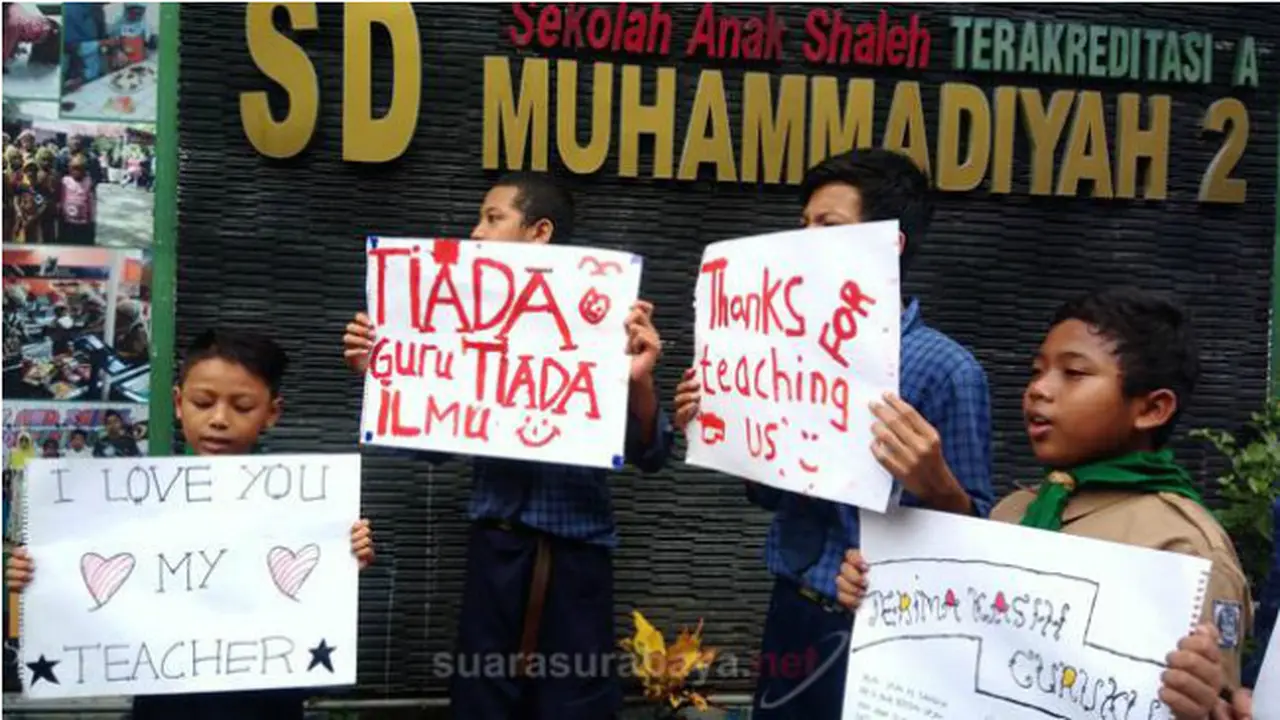 Sekolah Anak Shaleh TERAKREDITASI A
SD MUHAMMADIYAH 2
TIADA
Guru TIADA
ILMU
Thanks FOR
teaching
us
I LOVE YOU
MY
TEACHER
TERIMA KASIH
GURUKU
suarasurabaya.net